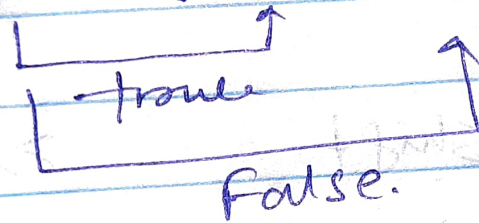 Traule
False.